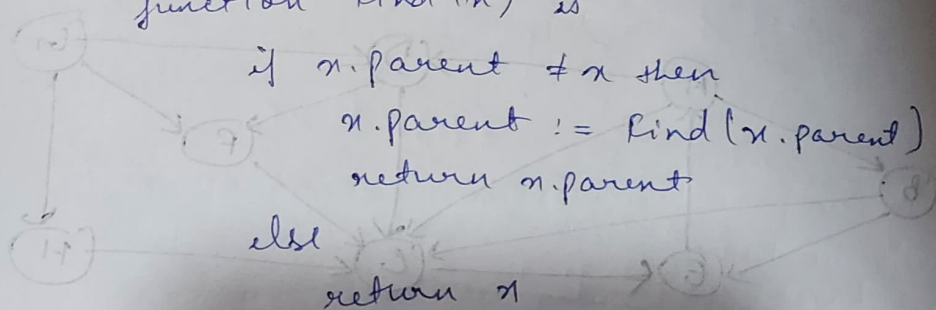 function Find(x) is
if x.parent ≠ x then
x.parent := Find(x.parent)
return x.parent
else
return x